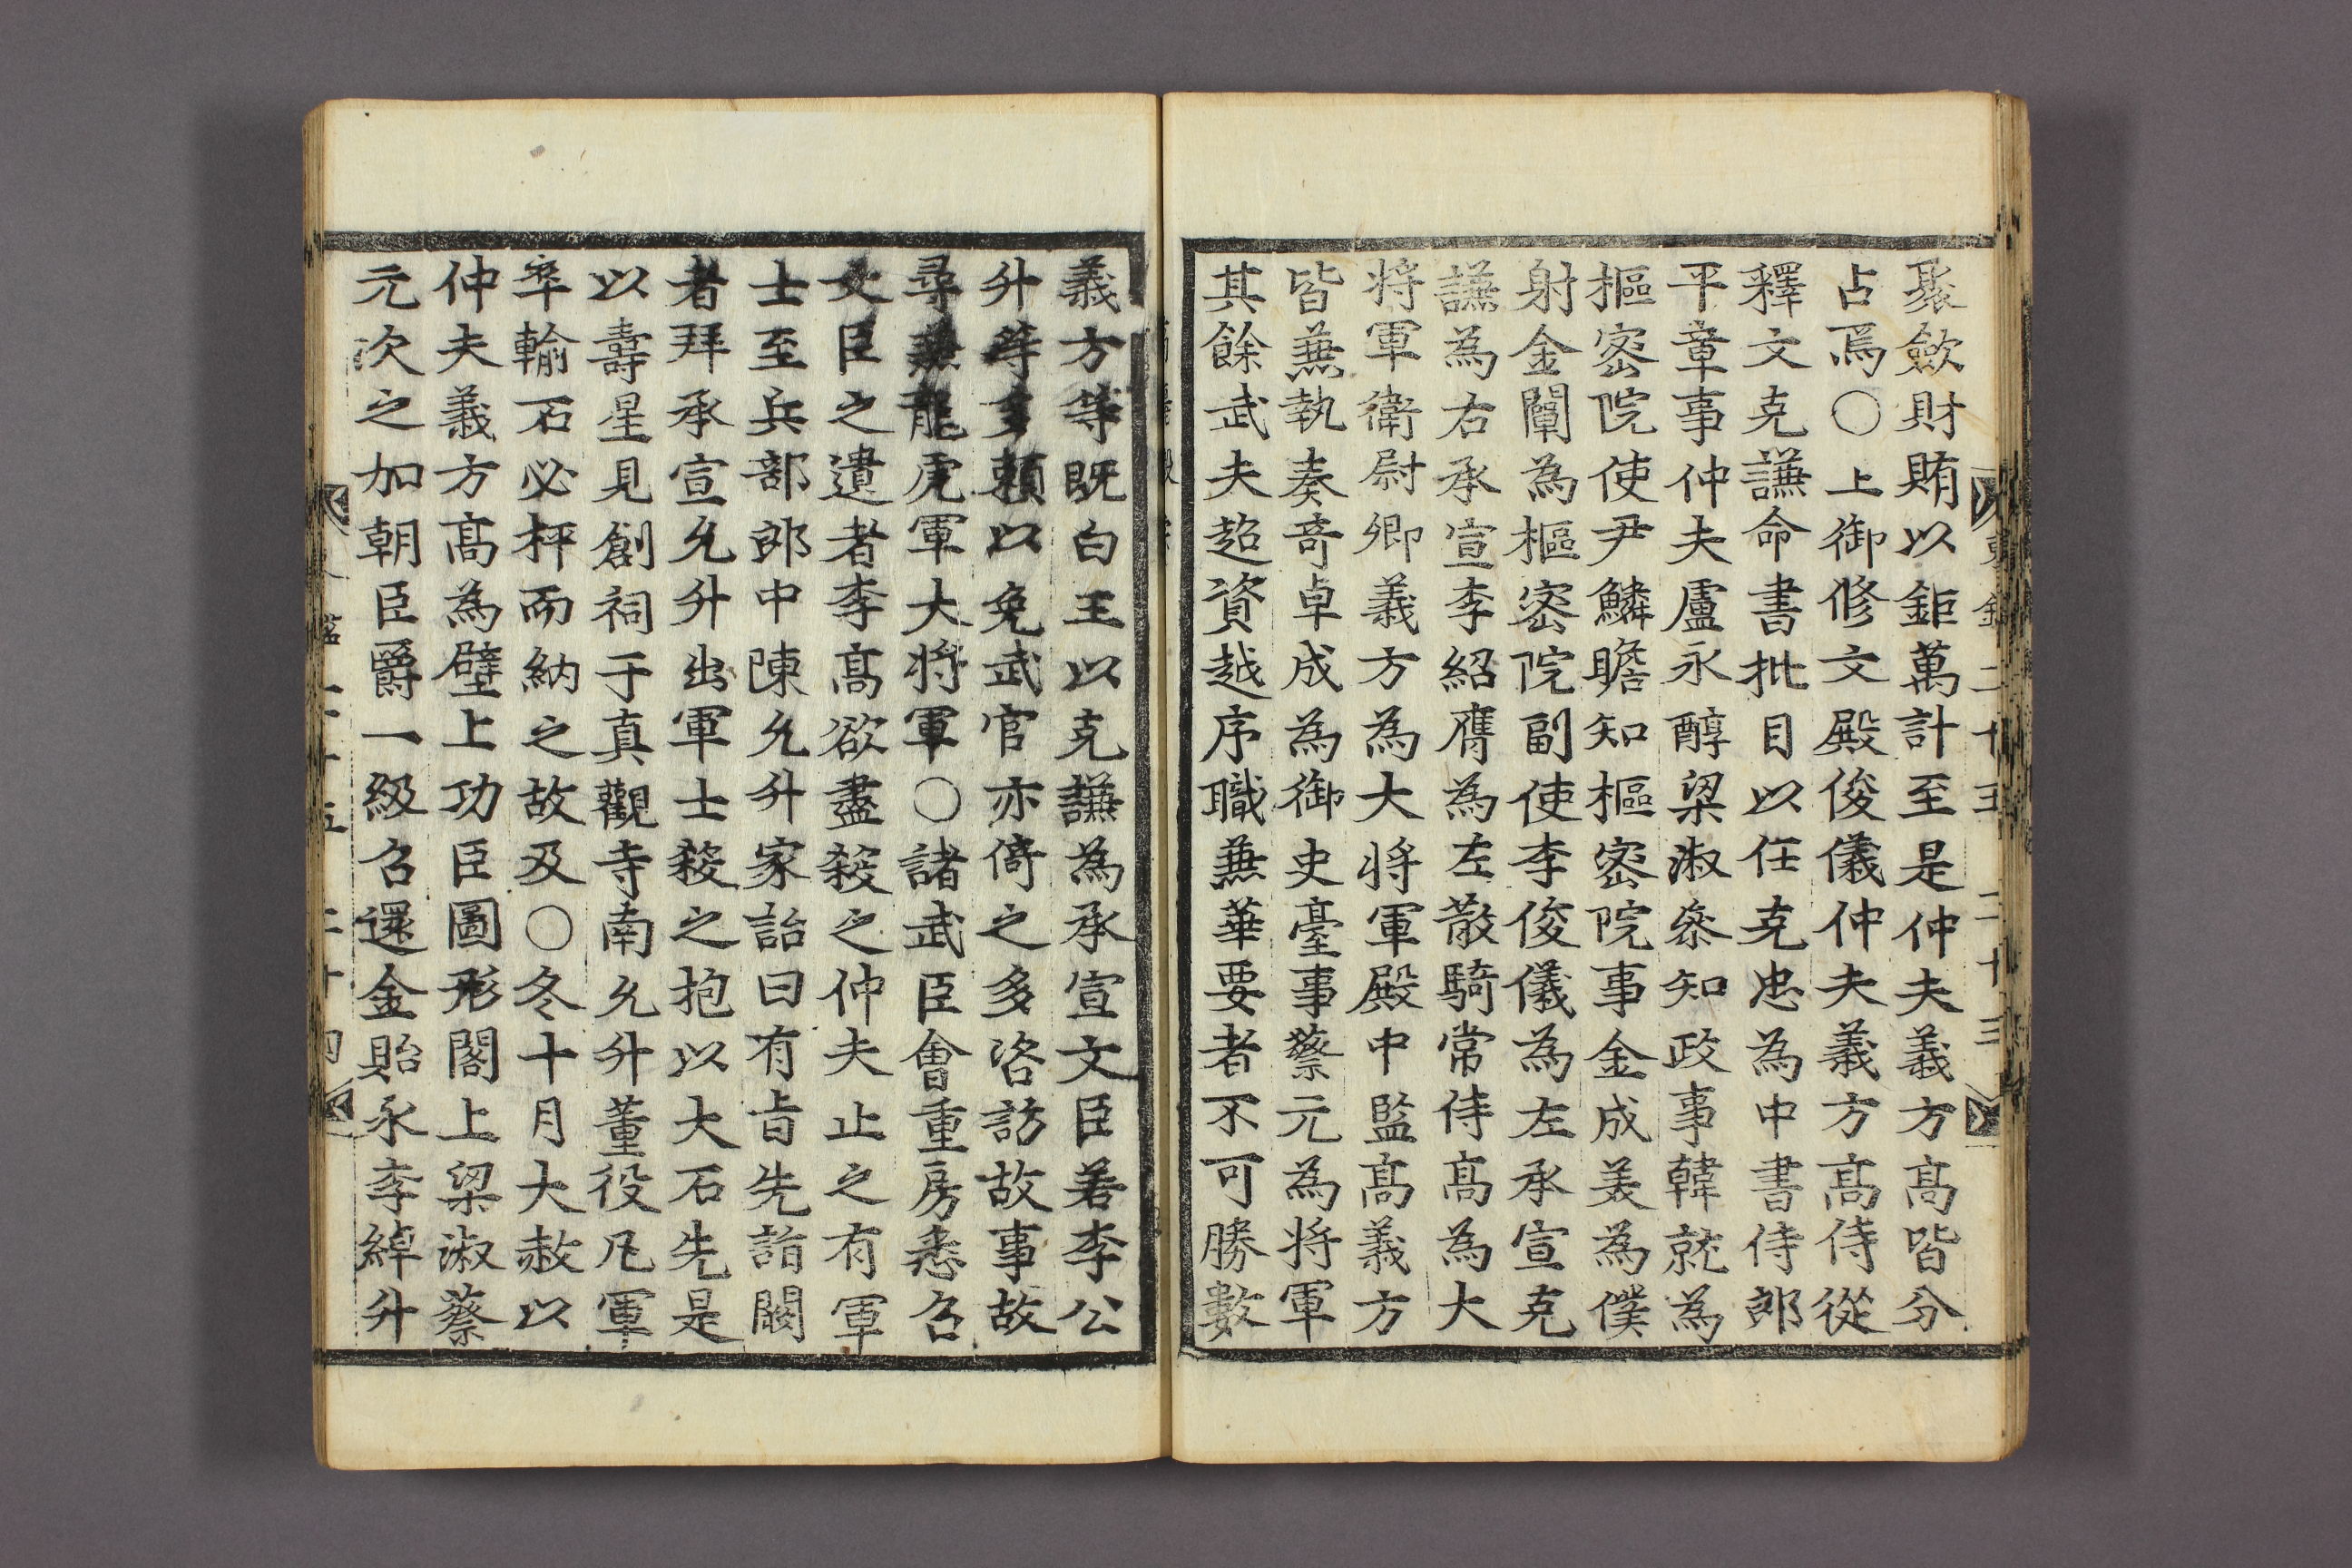 聚斂財賄以鉅萬計至是仲夫義方高皆分
占焉○上御修文殿俊儀仲夫義方高侍從
釋文克謙命書批目以任克忠為中書侍郎
平章事仲夫盧永醇梁淑叅知政事韓就為
樞密院使尹鱗瞻知樞密院事金成美為僕
射金闡為樞密院副使李俊儀為左承宣克
謙為右承宣李紹膺為左散騎常侍高為大
將軍衛尉卿義方為大將軍殿中監高義方
皆兼執奏竒卓成為御史臺事蔡元為將軍
其餘武夫超資越序職兼華要者不可勝數
義方等既白王以克謙為承宣文臣若李公
升等多賴以免武官亦倚之多咨訪故事故
尋兼龍虎軍大將軍○諸武臣會重房悉召
文臣之遺者李高欲盡殺之仲夫止之有軍
士至兵部郎中陳允升家詒曰有旨先詣闕
者拜承宣允升出軍士殺之抱以大石先是
以壽星見創祠于真觀寺南允升董役凡軍
卒輸石必枰而納之故及○冬十月大赦以
仲夫義方高為壁上功臣圖形閣上梁淑蔡
元次之加朝臣爵一級召還金貽永李綽升